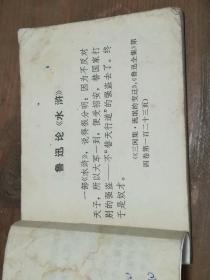 鲁迅论《水浒》
一部《水浒》,说得很分明:因为不反对
天子,所以大军一到,便受招安,替国家打
别的强盗——不“替天行道”的强盗去了。终
于是奴才。
(《三闲集·流氓的变迁》,《鲁迅全集》第
四卷第一百二十三页)